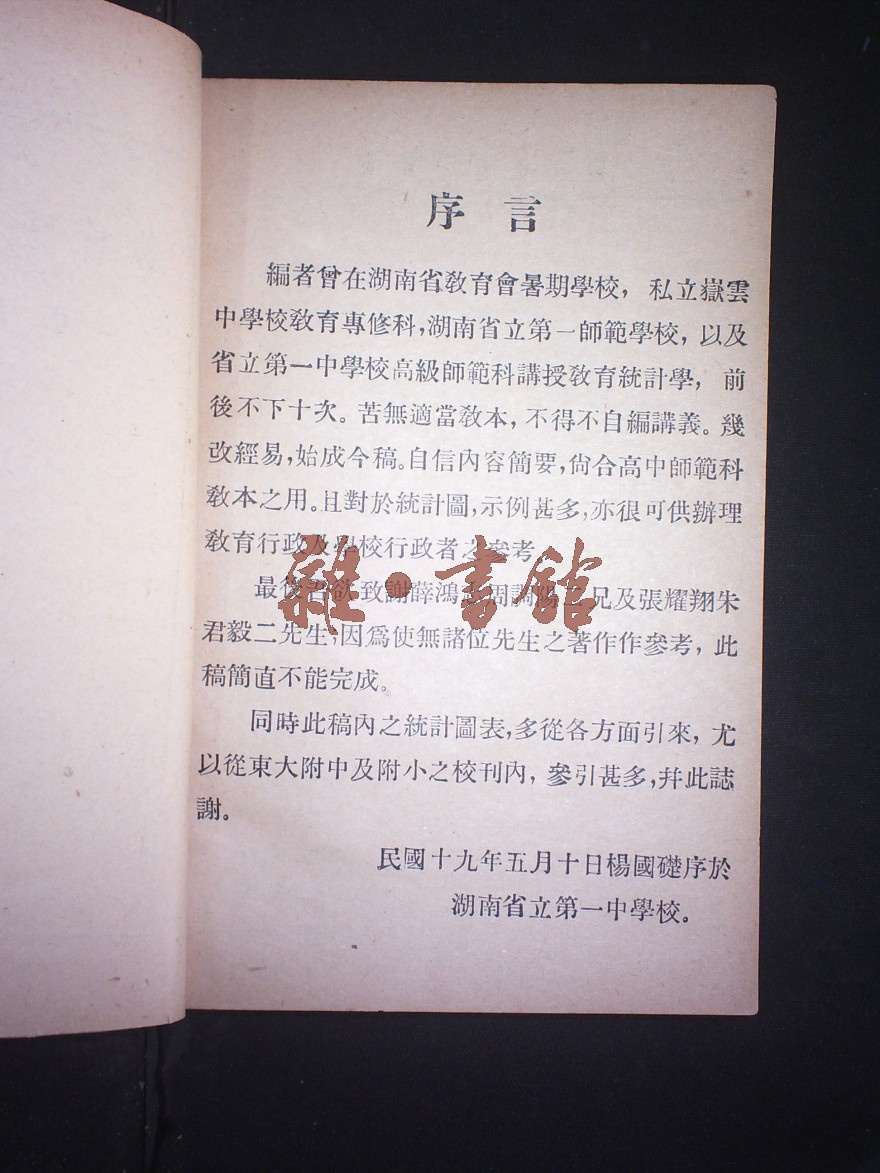 序言
編者曾在湖南省教育會暑期學校，私立嶽雲
中學校教育專修科，湖南省立第一師範學校，以及
省立第一中學校高級師範科講授教育統計學，前
後不下十次。苦無適當教本，不得不自編講義。幾
改經易，始成今稿。自信內容簡要，尙合高中師範科
教本之用。且對於統計圖，示例甚多，亦很可供辦理
教育行政及學校行政者之參考。
雜·書館
最後 欲致謝薛鴻 周調陽二兄及張耀翔朱
君毅二先生，因爲使無諸位先生之著作作參考，此
稿簡直不能完成。
同時此稿內之統計圖表，多從各方面引來，尤
以從東大附中及附小之校刊內，參引甚多，幷此誌
謝。
民國十九年五月十日楊國礎序於
湖南省立第一中學校。